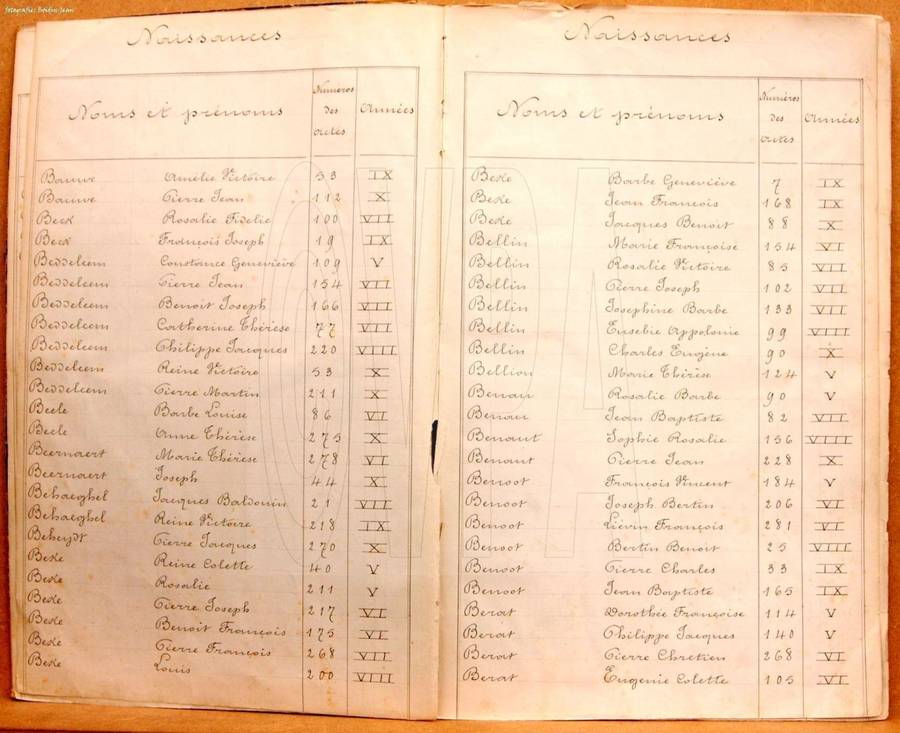 fotografie: Boidin Jean
Naissances
Noms et prénoms Numéros des actes Années
Bauwe Amélie Victoire 53 IX
Bauwe Pierre Jean 112 X
Beck Rosalie Fidelie 100 VII
Beck François Joseph 19 IX
Beddeleem Constance Geneviève 109 V
Beddeleem Pierre Jean 154 VII
Beddeleem Benoit Joseph 166 VII
Beddeleem Catherine Thérèse 77 VII
Beddeleem Philippe Jacques 220 VIII
Beddeleem Reine Victoire 53 X
Beddeleem Pierre Martin 211 X
Beele Barbe Louise 86 VI
Beele Anne Thérèse 275 X
Beernaert Marie Thérèse 278 VI
Beernaert Joseph 44 X
Behaeghel Jacques Baldouin 21 VII
Behaeghel Reine Victoire 218 IX
Beheydt Pierre Jacques 270 X
Beke Reine Colette 40 V
Beke Rosalie 211 V
Beke Pierre Joseph 217 VI
Beke Benoit François 175 VI
Beke Pierre François 268 VII
Beke Louis 200 VIII
Naissances
Noms et prénoms Numéros des actes Années
Beke Barbe Geneviève 7 IX
Beke Jean François 168 IX
Beke Jacques Benoit 88 X
Bellin Marie Françoise 154 VI
Bellin Rosalie Victoire 85 VII
Bellin Pierre Joseph 102 VII
Bellin Josephine Barbe 133 VII
Bellin Eusebie Appolonie 99 VIII
Bellin Charles Eugène 90 X
Bellion Marie Thérèse 124 V
Benau Rosalie Barbe 90 V
Benau Jean Baptiste 82 VII
Benaut Sophie Rosalie 156 VIII
Benaut Pierre Jean 228 X
Benoot François Vincent 184 V
Benoot Joseph Bertin 206 VI
Benoot Liévin François 281 VI
Benoot Bertin Benoit 25 VIII
Benoot Pierre Charles 33 IX
Benoot Jean Baptiste 165 IX
Berat Dorothée Françoise 114 V
Berat Philippe Jacques 140 V
Berat Pierre Chretien 268 VI
Berat Eugenie Colette 105 VI